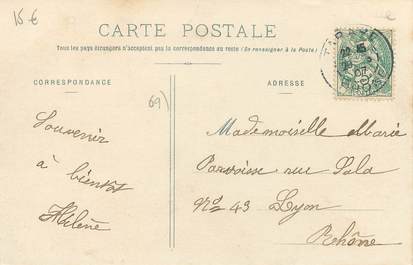 15 €
CARTE POSTALE
Tous les pays étrangers n'acceptent pas la correspondance au recto (Se renseigner à la Poste)
CORRESPONDANCE
ADRESSE
69)
Souvenir
à bientôt
Hélène
Mademoiselle Marie
rue Sala
No 43 Lyon
Rhône
TARARE
RHONE